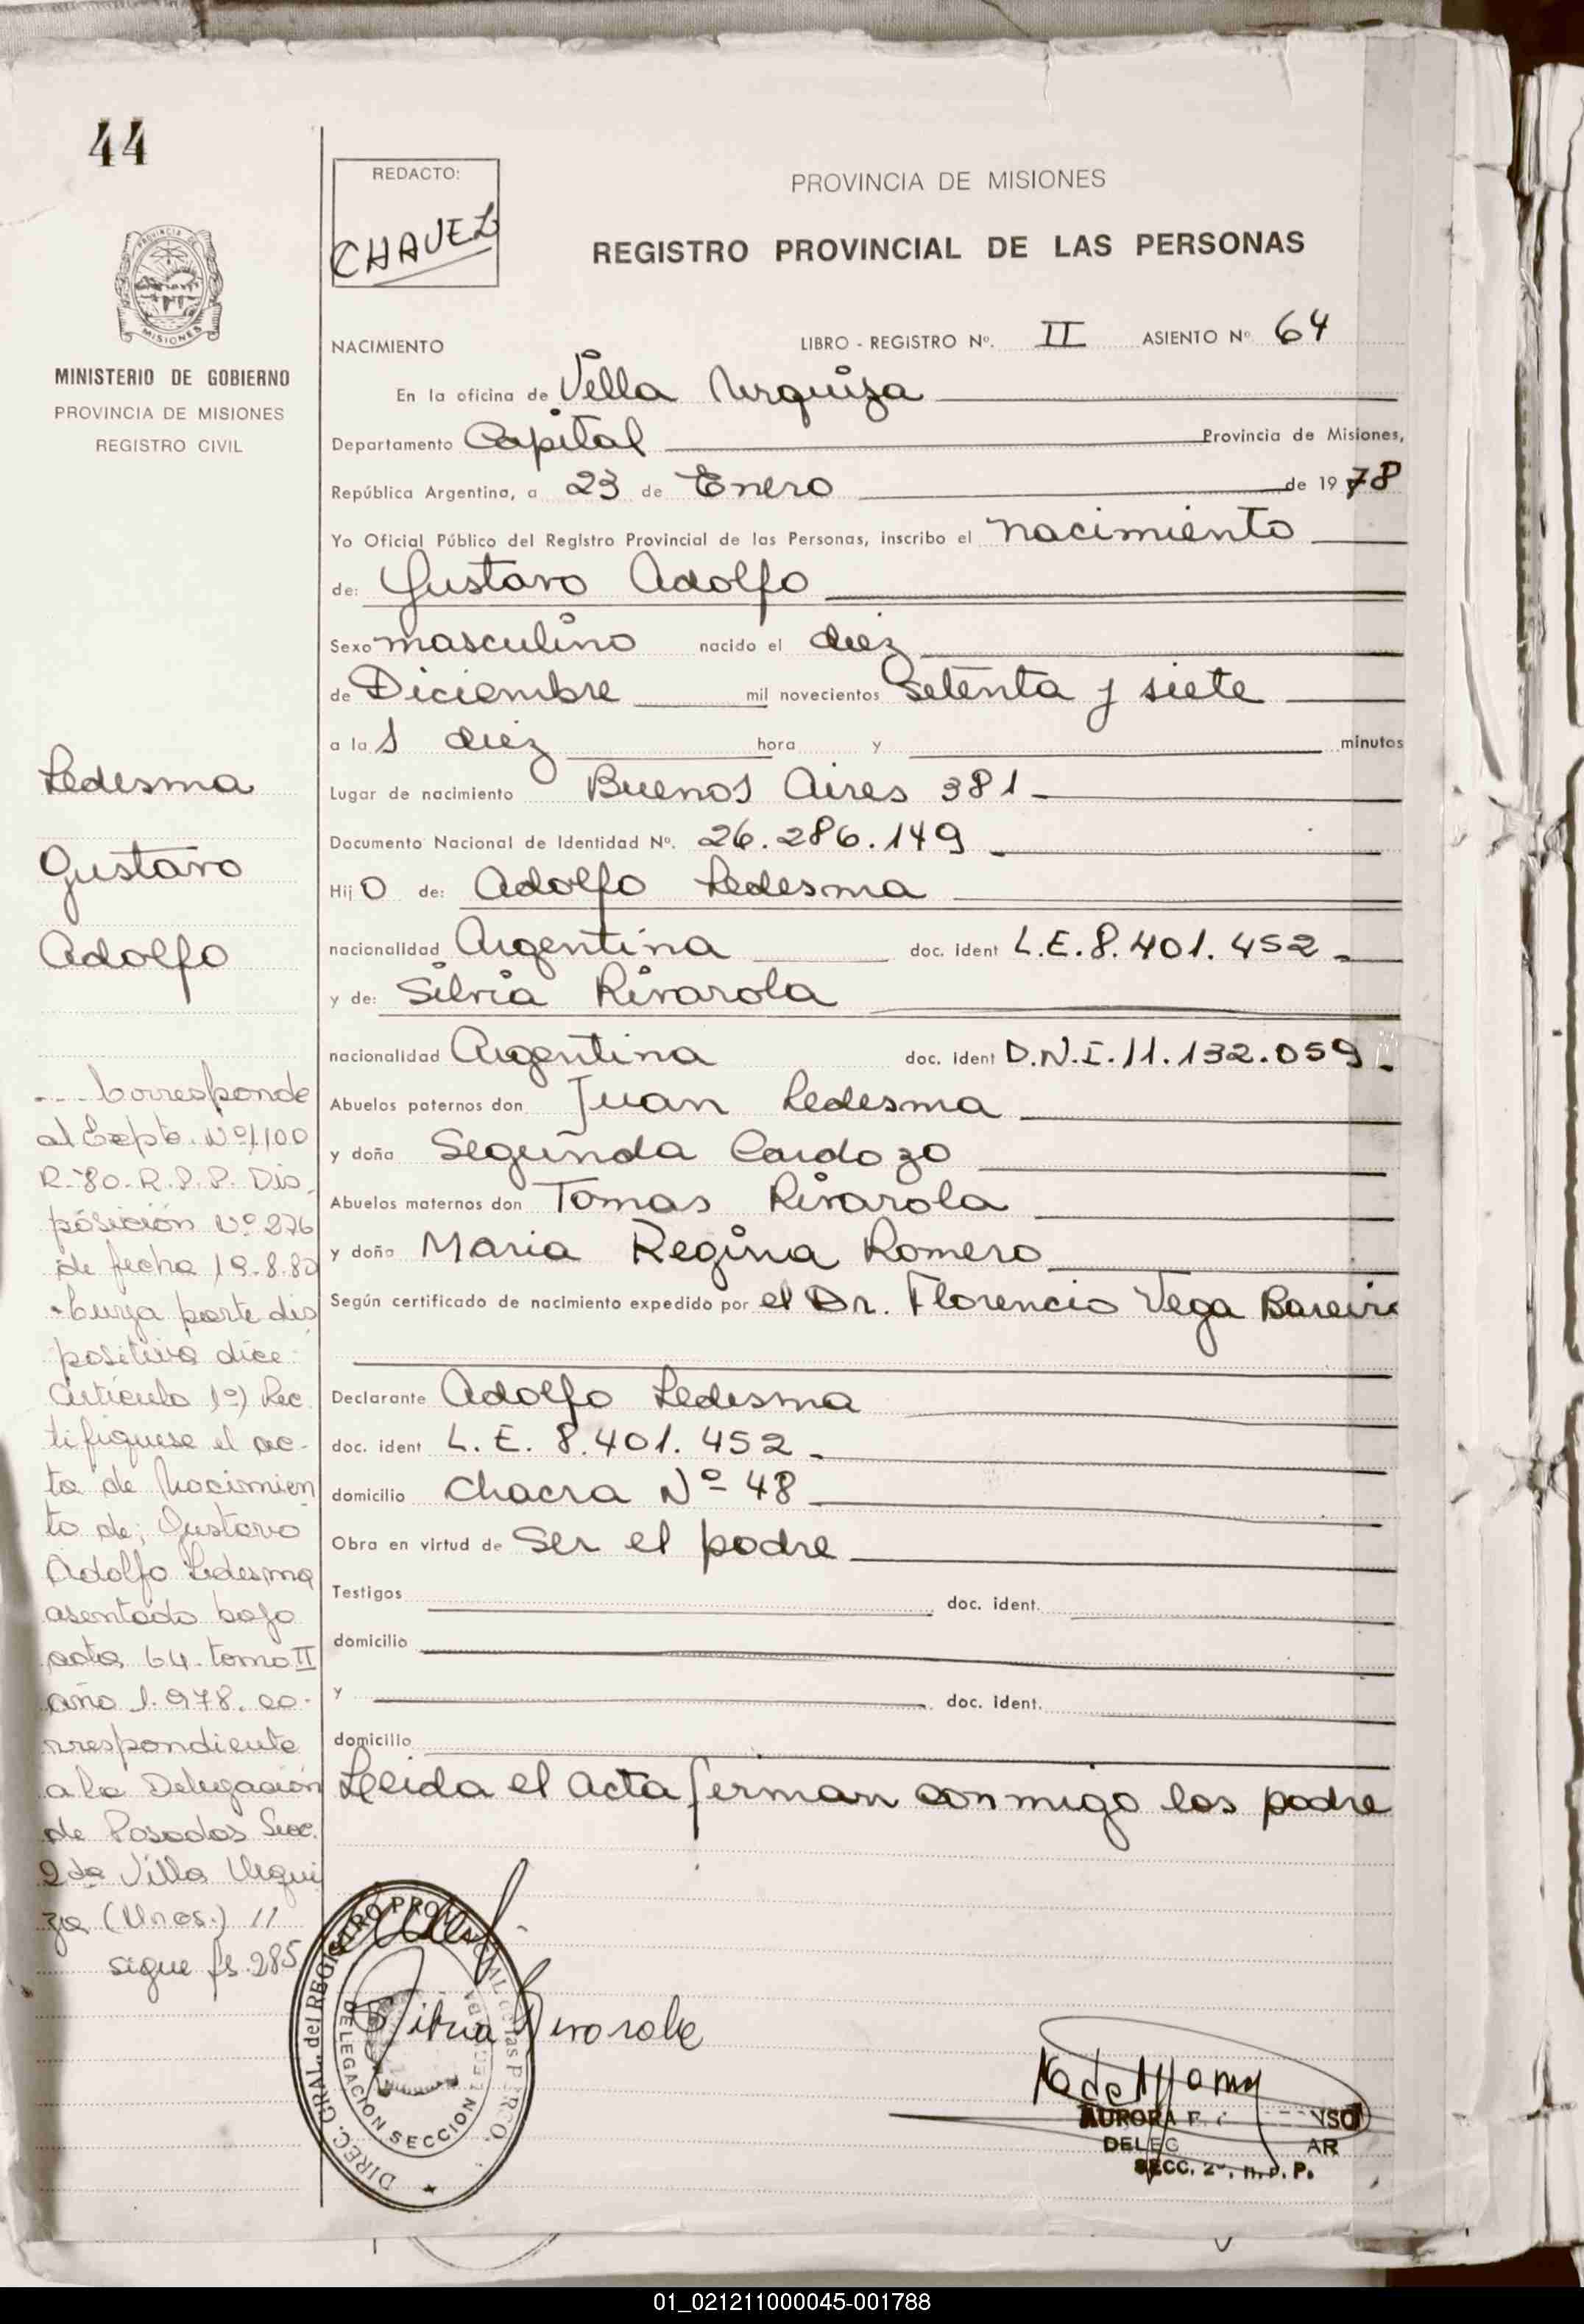 44
PROVINCIA DE
MISIONES
MINISTERIO DE GOBIERNO
PROVINCIA DE MISIONES
REGISTRO CIVIL
REDACTO:
CHAVEZ
PROVINCIA DE MISIONES
REGISTRO PROVINCIAL DE LAS PERSONAS
NACIMIENTO LIBRO - REGISTRO Nº. II ASIENTO Nº 64
En la oficina de Villa Urquiza
Departamento Capital Provincia de Misiones,
República Argentina, a 23 de Enero de 1978
Yo Oficial Público del Registro Provincial de las Personas, inscribo el nacimiento
de: Gustavo Adolfo
Sexo masculino nacido el diez
de Diciembre mil novecientos setenta y siete
a las diez hora y minutos
Lugar de nacimiento Buenos Aires 381
Documento Nacional de Identidad Nº. 26.286.149
Hijo de: Adolfo Ledesma
nacionalidad Argentina doc. ident L.E. 8.401.452
y de: Silvia Rivarola
nacionalidad Argentina doc. ident D.N.I. 11.132.059
Abuelos paternos don Juan Ledesma
y doña Segunda Cardozo
Abuelos maternos don Tomas Rivarola
y doña Maria Regina Romero
Según certificado de nacimiento expedido por el Dr. Florencio Vega Bareiro
Declarante Adolfo Ledesma
doc. ident L.E. 8.401.452
domicilio Chacra Nº 48
Obra en virtud de ser el padre
Testigos doc. ident.
domicilio
y doc. ident.
domicilio
Leida el acta firman conmigo los padre
Ledesma
Gustavo
Adolfo
Corresponde
al Expte. Nº 1100
R-80-R.P.P. Dis-
posición Nº 276
de fecha 19-8-80
Cuya parte dis
positiva dice:
Artículo 1º) Rec
tifiquese el ac-
ta de Nacimien
to de; Gustavo
Adolfo Ledesma
asentado bajo
acta 64 tomo II
año 1.978. co-
rrespondiente
a la Delegación
de Posadas Secc.
2da Villa Urqui
za (Mnes.) //
sigue fs. 285
DIREC. GRAL. del REGISTRO PROVINCIAL de las PERSO.
DELEGACION SECCION
Silvia Rivarola
AURORA
DELEG AR
SECC. 2ª. R. P. P.
01_021211000045-001788